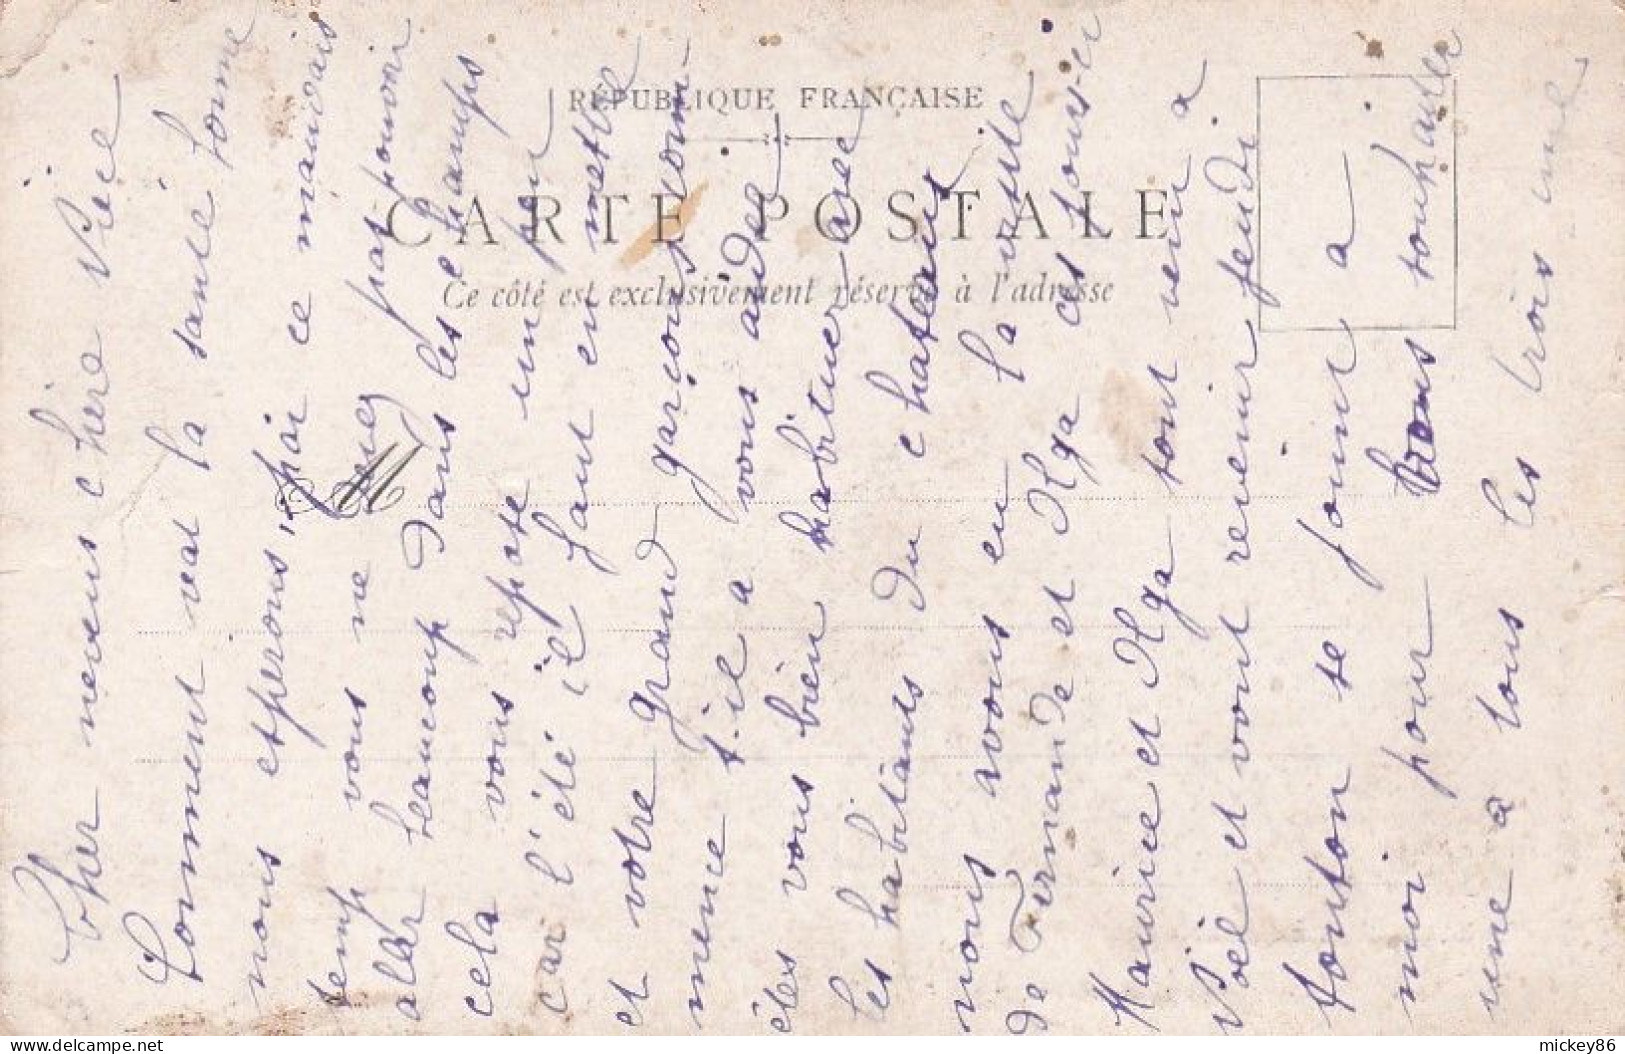 RÉPUBLIQUE FRANÇAISE
CARTE POSTALE
Ce côté est exclusivement réservé à l'adresse
M
Cher neveus chère Nièce
Comment vat la santé bonne
nous esperons, par ce mauvais
temp vous ne devez pas pouvoir
aler beaucoup dans les champs
cela vous repose un peu
car l'été il faut en mettre
et votre grand garçons comm-
mence t-il a vous aider
êtes vous bien habituer avec
les habitants du chateau
nous avons eu la visite
de Fernande et Olga ces jours-ci
Maurice et Olga sont venu a
Noël et vont revenir jeudi
tonton se joint a
moi pour vous souhaiter
une a tous les trois une
mickey86